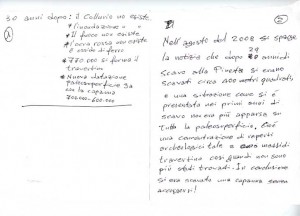 30 anni dopo: il Colluvio non esiste
* l'inondazione " "
* Il fuoco non esiste
* l'ocra rossa non esiste
è ossido di ferro
* 730.000 si forma il
travertino
* Nuova datazione
paleosuperficie 3a
con la capanna
700.000-600.000
Nell'agosto del 2008 si sparse
la notizia che dopo 29 anni di
scavo alla Pineta si erano
scavati circa 200 metri quadrati
e una situazione come si è
presentata nei primi anni di
scavo non era più apparsa su
tutta la paleosuperficie. Cioè
una concentrazione di reperti
archeologici tale a massi di
travertino così grandi non sono
più stati trovati. In conclusione
si era scavato una capanna senza
accorgersi!